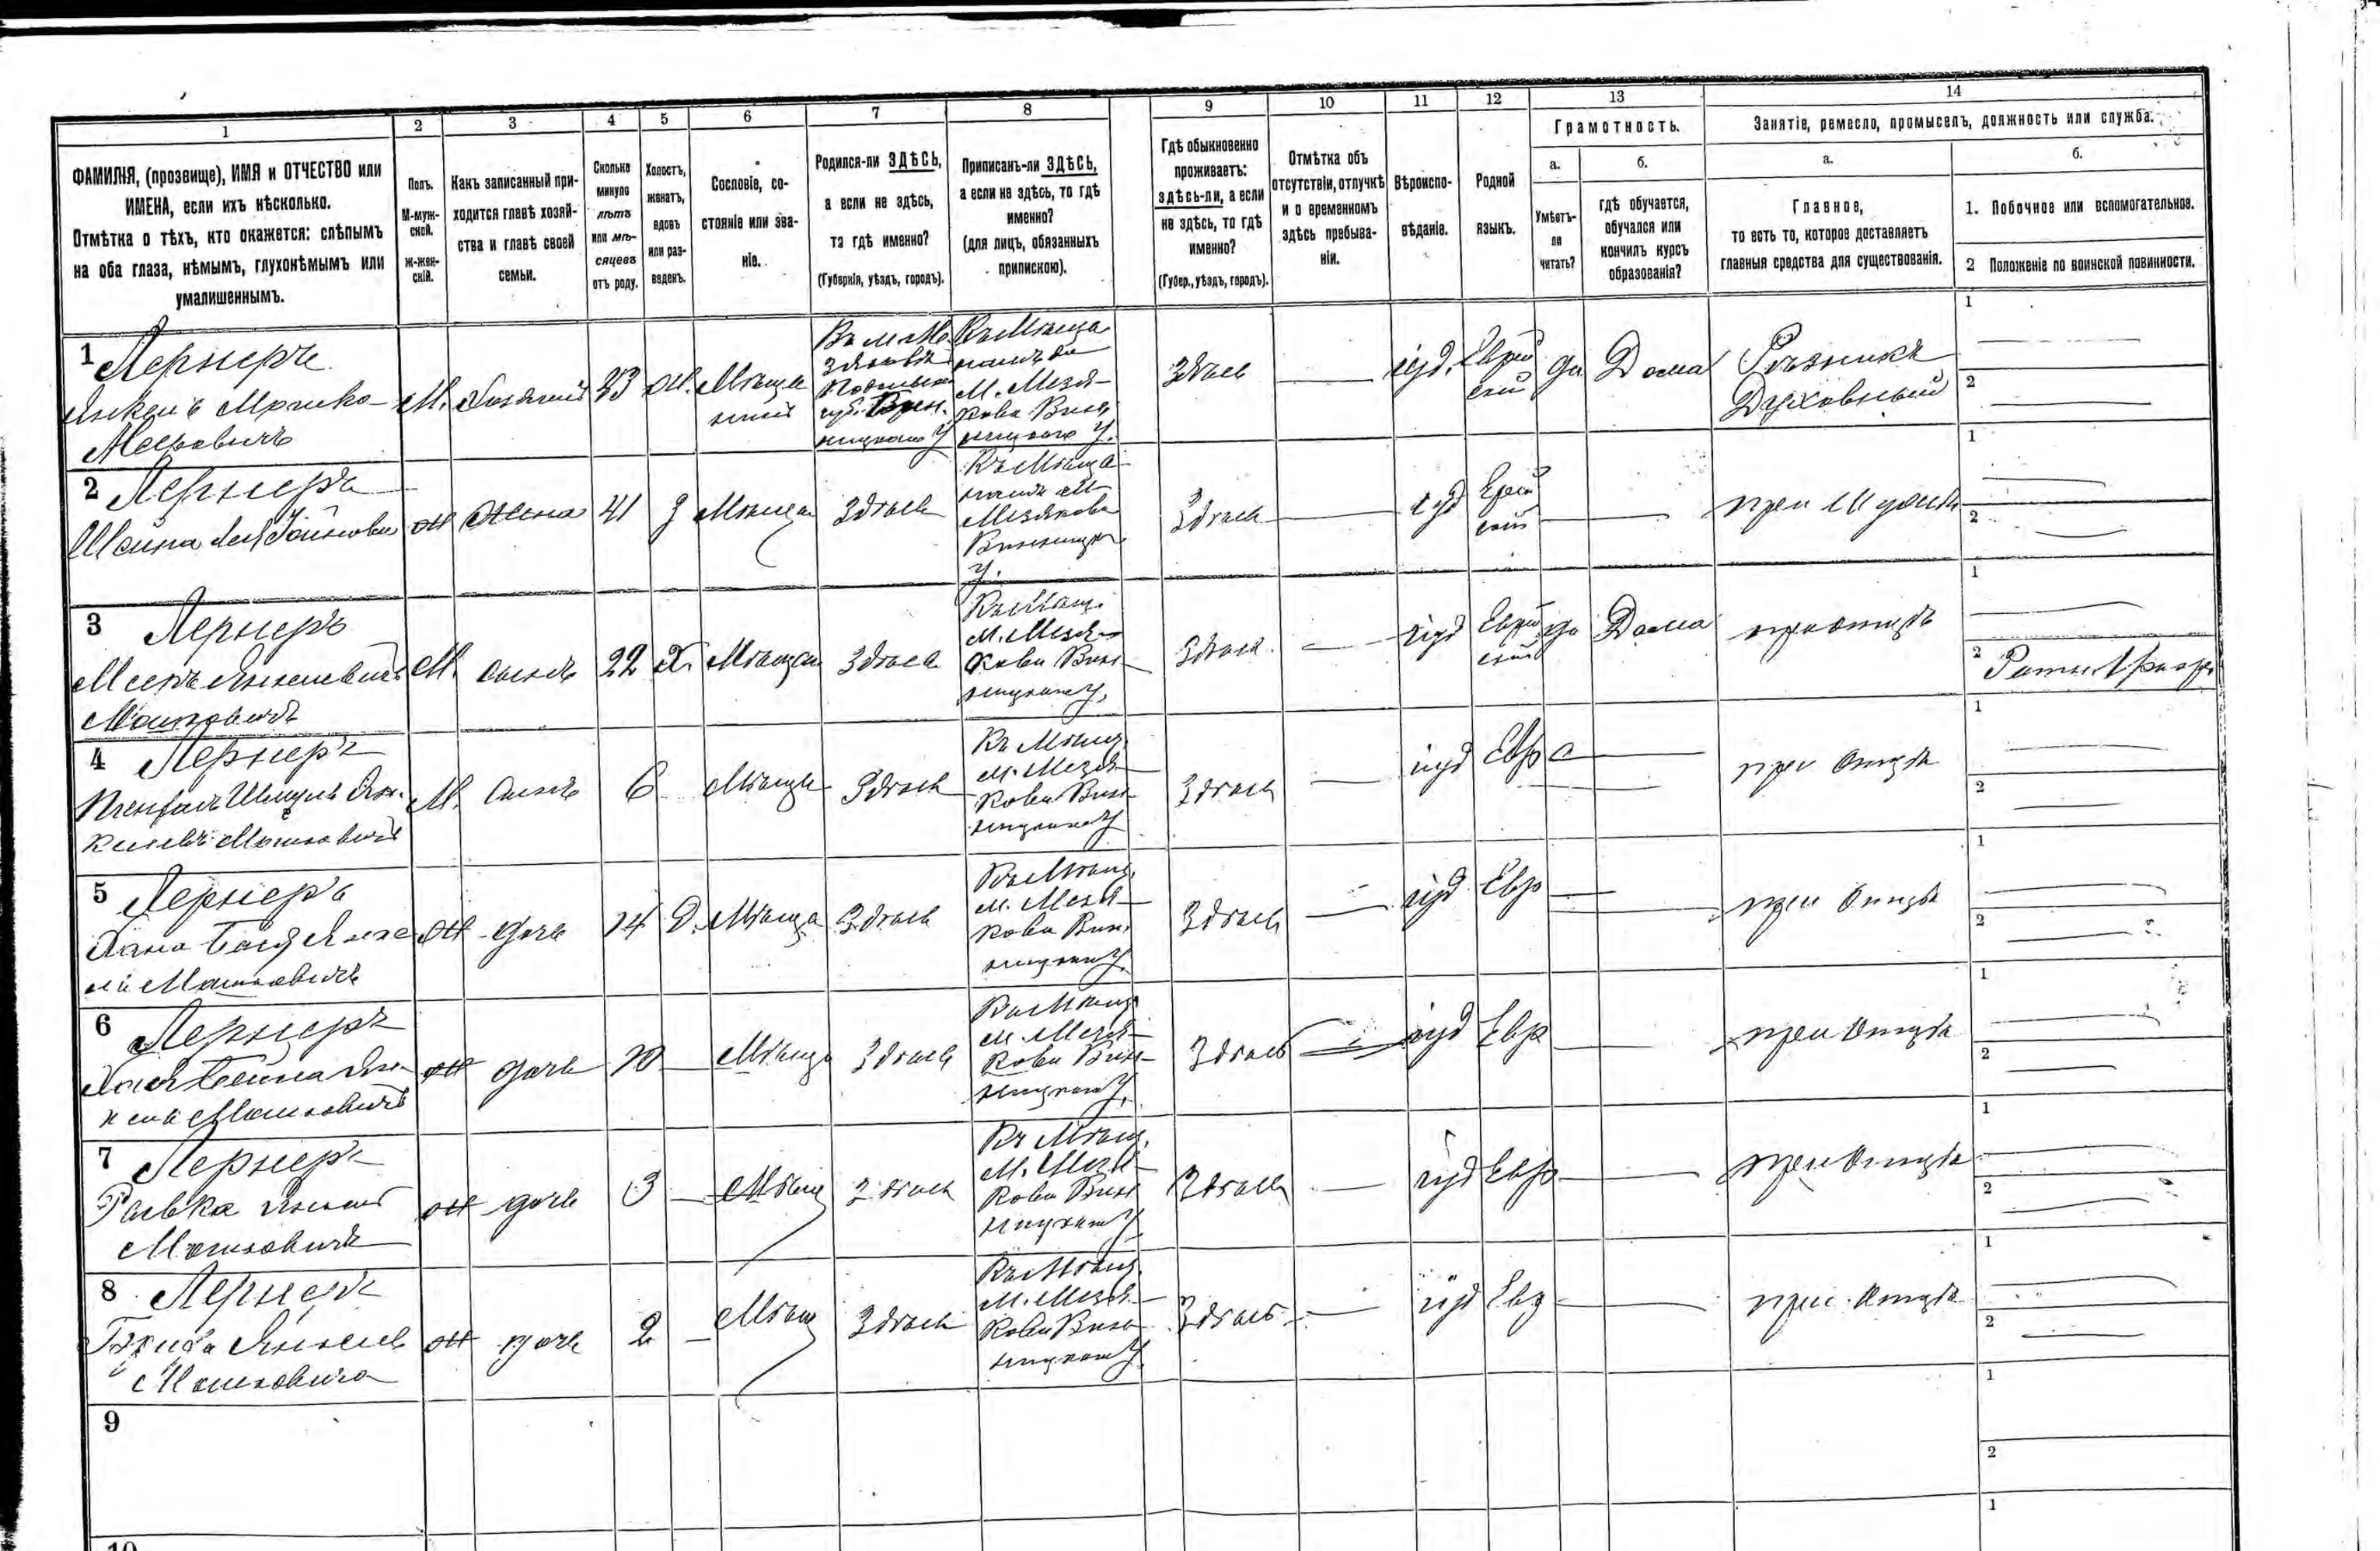 1 2 3 4 5 6 7 8 9 10 11 12 13 14
ФАМИЛІЯ, (прозвище), ИМЯ и ОТЧЕСТВО или
ИМЕНА, если ихъ нѣсколько.
Отмѣтка о тѣхъ, кто окажется: слѣпымъ
на оба глаза, нѣмымъ, глухонѣмымъ или
умалишеннымъ.
Полъ.
М-муж-
ской.
Ж-жен-
скій.
Какъ записанный при-
ходится главѣ хозяй-
ства и главѣ своей
семьи.
Сколько
минуло
лѣтъ
или мѣ-
сяцевъ
отъ роду.
Холостъ,
женатъ,
вдовъ
или раз-
веденъ.
Сословіе, со-
стояніе или зва-
ніе.
Родился-ли ЗДѢСЬ,
а если не здѣсь,
то гдѣ именно?
(Губернія, уѣздъ, городъ).
Приписанъ-ли ЗДѢСЬ,
а если не здѣсь, то гдѣ
именно?
(для лицъ, обязанныхъ
припискою).
Гдѣ обыкновенно
проживаетъ:
здѣсь-ли, а если
не здѣсь, то гдѣ
именно?
(Губер., уѣздъ, городъ).
Отмѣтка объ
отсутствіи, отлучкѣ
и о временномъ
здѣсь пребыва-
ніи.
Вѣроиспо-
вѣданіе.
Родной
языкъ.
Грамотность.
а.
Умѣетъ-
ли
читать?
б.
гдѣ обучается,
обучался или
кончилъ курсъ
образованія?
Занятіе, ремесло, промыселъ, должность или служба.
а.
Главное,
то есть то, которое доставляетъ
главныя средства для существованія.
б.
1. Побочное или вспомогательное.
2 Положеніе по воинской повинности.
1 Лернеръ
Янкель Мошко-
Меировичъ
М. Хозяинъ 43 Ж. Мѣща
нинъ
Къ Мѣща
намъ
М. Мезя-
кова Вин
ницкаго У.
Здѣсь
іуд. Еврей
скій
да Дома
Рѣзникъ
Духовный
1
2
2 Лернеръ
Ж Жена 41 З Мѣщан Здѣсь
Къ Мѣща
намъ М
Мезякова
Винницка
У.
Здѣсь
іуд
при
1
2
3 Лернеръ
Меиръ Янкелевичъ
Мошковичъ
М. сынъ 22 Х. Мѣщан Здѣсь
Къ Мѣщ.
М. Мезя-
кова Вин-
ницкаго У.
Здѣсь
іуд Еврей
скій
да Дома
при отцѣ
1
2
Ратн. 1 разр.
4 Лернеръ
М. Сынъ 6 Мѣщан Здѣсь
Къ Мѣщ.
М. Мезя-
кова Вин-
ницкаго У
Здѣсь
іуд Евр
при отцѣ
1
2
5 Лернеръ
Хана Бася Янке
Мошковичъ
Ж дочь 14 Д. Мѣща Здѣсь
Къ Мѣщ.
М. Мезя-
кова Вин-
ницкаго У.
Здѣсь
іуд Евр
при отцѣ
1
2
6 Лернеръ
Хая Бейна Ян-
Мошковичъ
Ж дочь 10 Мѣща Здѣсь
Къ Мѣщ
М. Мезя-
кова Вин-
ницкаго У.
Здѣсь
іуд Евр
при отцѣ
1
2
7 Лернеръ
Ривка
Мошковичъ
Ж дочь 3 Мѣщ Здѣсь
Къ Мѣщ.
М. Мезя-
кова Вин
ницкаго У
Здѣсь
іуд Евр
при отцѣ
1
2
8 Лернеръ
Янкелев
Мошковича
Ж дочь 2 Мѣщ Здѣсь
Къ Мѣщ.
М. Мезя-
кова Вин-
ницкаго У
Здѣсь
іуд Евр
при отцѣ
1
2
9
1
2
10
1